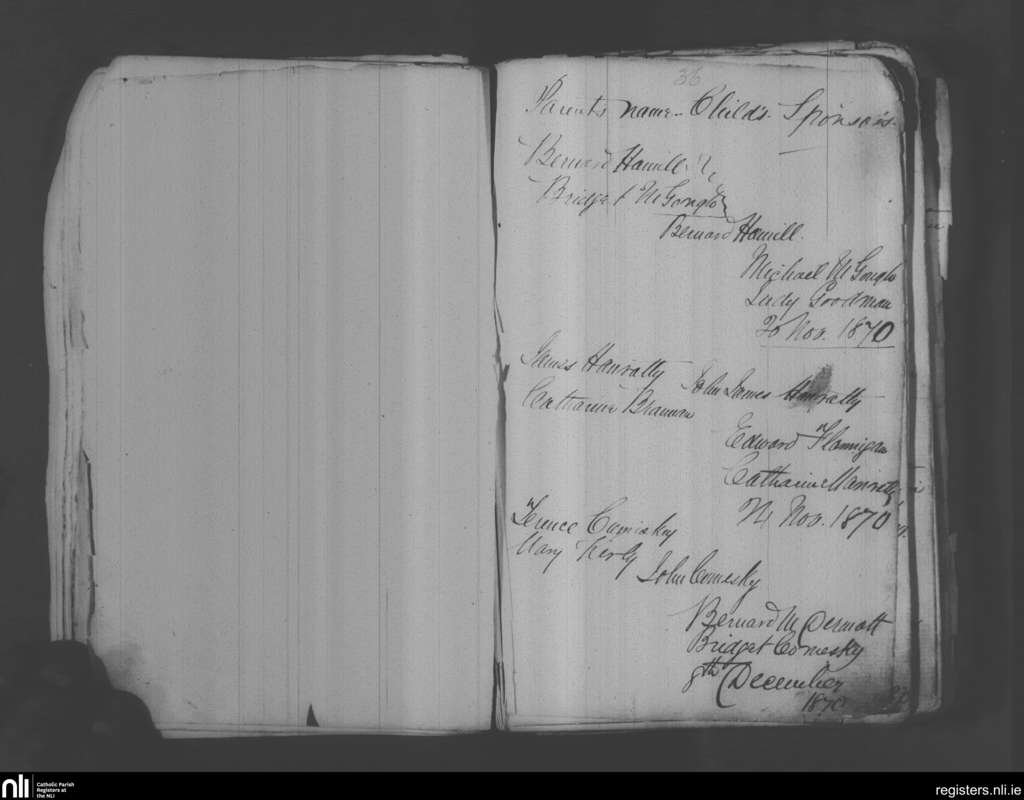 36
Parents name - Child's - Sponsors -
Bernard Hamill
Bridget McGongh
Bernard Hamill.
Michael McGongh
Judy Goodman
20 Nov. 1870
James Hanratty
John James Hanratty
Catharine Brannon
Edward Flannigan
Catharine Hanratty
Nov. 1870
Terence Comiskey
Mary Kirly
John Comesky
Bernard McDermott
Bridget Comesky
8th December
1870
nli
Catholic Parish
Registers at
the NLI
registers.nli.ie